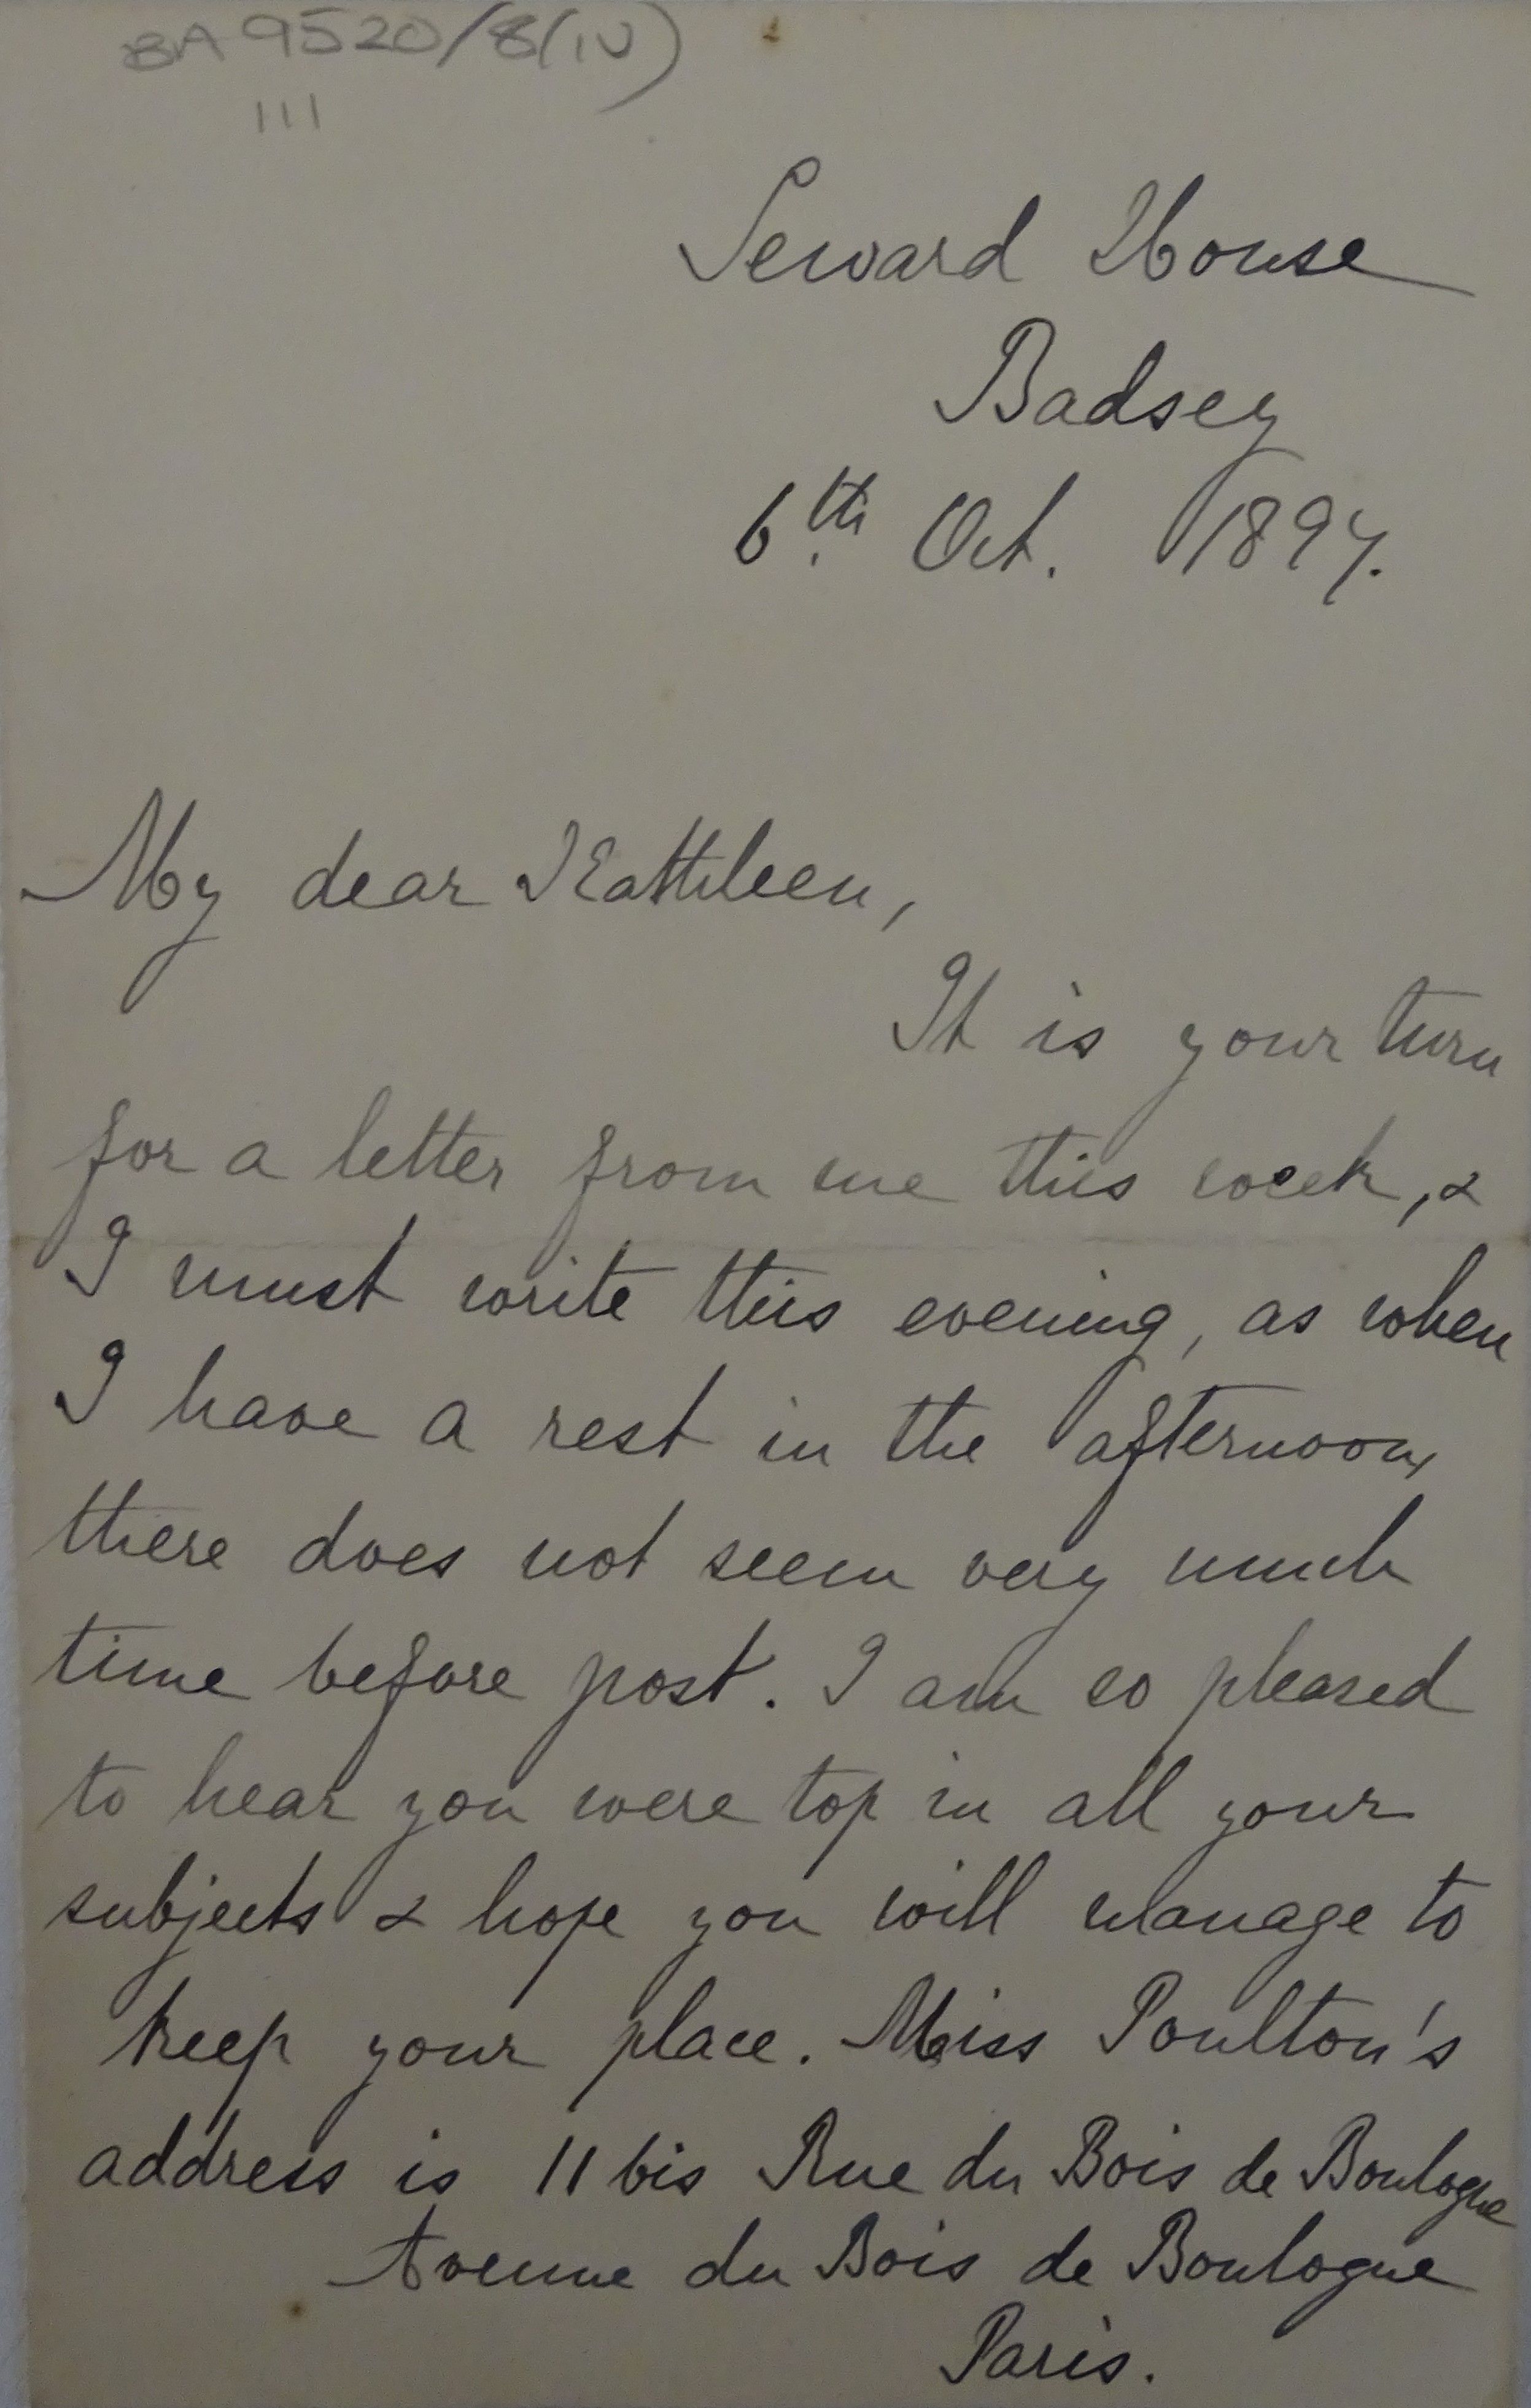 BA 9520/8(IV)
111
Seward House
Badsey
6th Oct. 1897.
My dear Kathleen,
It is your turn
for a letter from me this week, &
I must write this evening, as when
I have a rest in the afternoon,
there does not seem very much
time before post. I am so pleased
to hear you were top in all your
subjects & hope you will manage to
keep your place. Miss Poulton's
address is 11 bis Rue du Bois de Boulogne
Avenue du Bois de Boulogne
Paris.